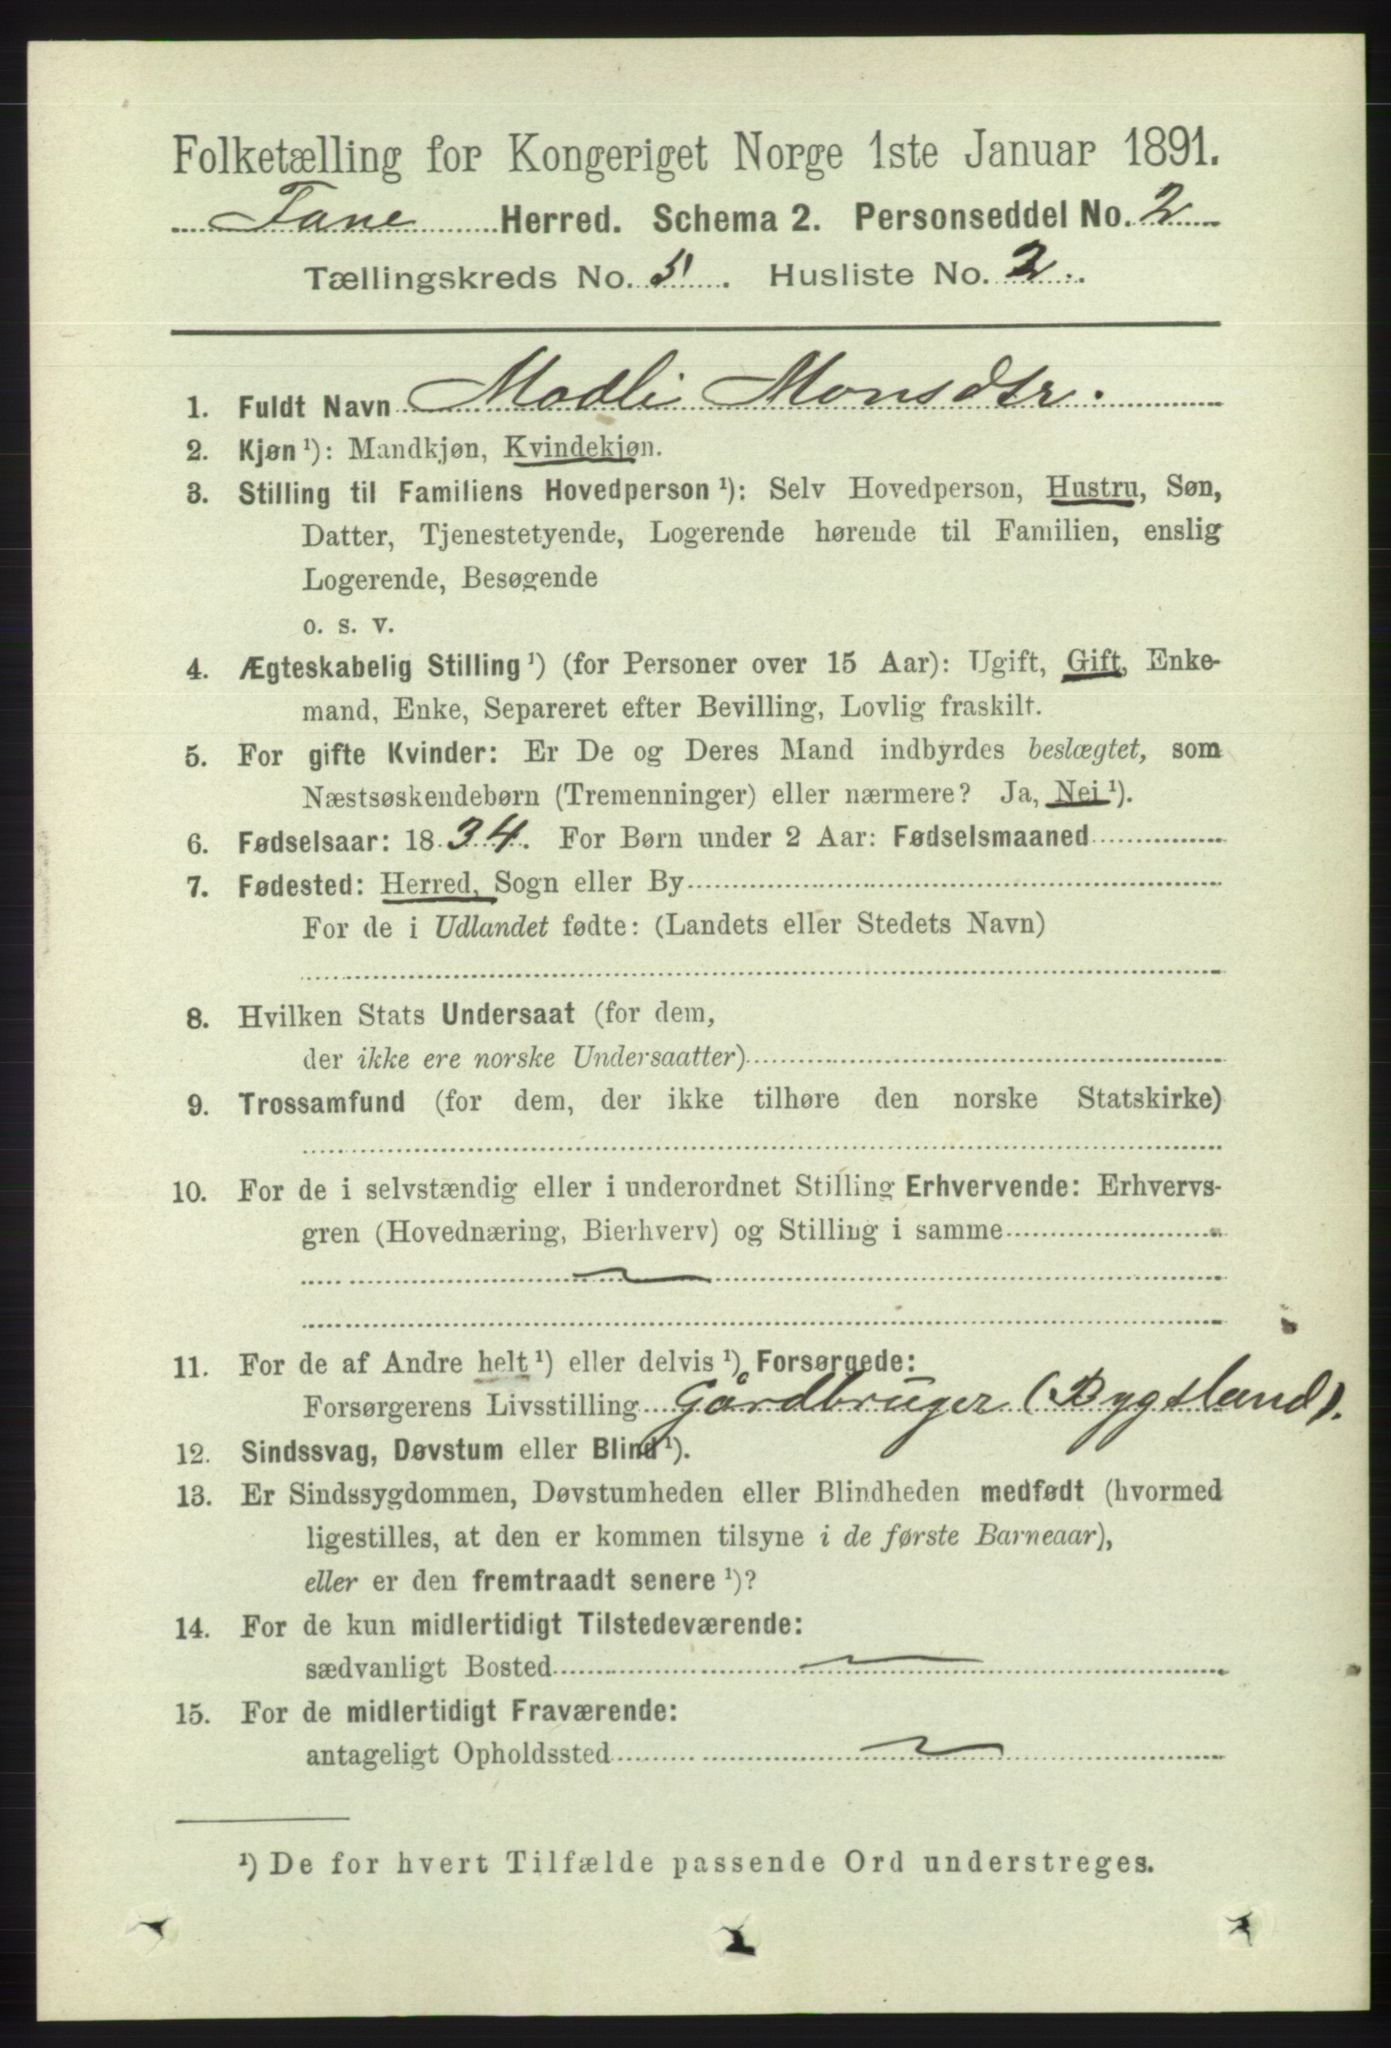 Folketælling for Kongeriget Norge 1ste Januar 1891.
Fane Herred. Schema 2. Personseddel No. 2
Tællingskreds No. 5. Husliste No. 2.
1. Fuldt Navn Madli Monsdtr.
2. Kjøn ¹): Mandkjøn, Kvindekjøn.
3. Stilling til Familiens Hovedperson ¹): Selv Hovedperson, Hustru, Søn,
Datter, Tjenestetyende, Logerende hørende til Familien, enslig
Logerende, Besøgende
o. s. v.
4. Ægteskabelig Stilling ¹) (for Personer over 15 Aar): Ugift, Gift, Enke-
mand, Enke, Separeret efter Bevilling, Lovlig fraskilt.
5. For gifte Kvinder: Er De og Deres Mand indbyrdes beslægtet, som
Næstsøskendebørn (Tremenninger) eller nærmere? Ja, Nei ¹).
6. Fødselsaar: 1834. For Børn under 2 Aar: Fødselsmaaned
7. Fødested: Herred, Sogn eller By
For de i Udlandet fødte: (Landets eller Stedets Navn)
8. Hvilken Stats Undersaat (for dem,
der ikke ere norske Undersaatter)
9. Trossamfund (for dem, der ikke tilhøre den norske Statskirke)
10. For de i selvstændig eller i underordnet Stilling Erhvervende: Erhvervs-
gren (Hovednæring, Bierhverv) og Stilling i samme
11. For de af Andre helt ¹) eller delvis ¹) Forsørgede:
Forsørgerens Livsstilling Gårdbruger (Bygsland).
12. Sindssvag, Døvstum eller Blind ¹).
13. Er Sindssygdommen, Døvstumheden eller Blindheden medfødt (hvormed
ligestilles, at den er kommen tilsyne i de første Barneaar),
eller er den fremtraadt senere ¹)?
14. For de kun midlertidigt Tilstedeværende:
sædvanligt Bosted
15. For de midlertidigt Fraværende:
antageligt Opholdssted
¹) De for hvert Tilfælde passende Ord understreges.